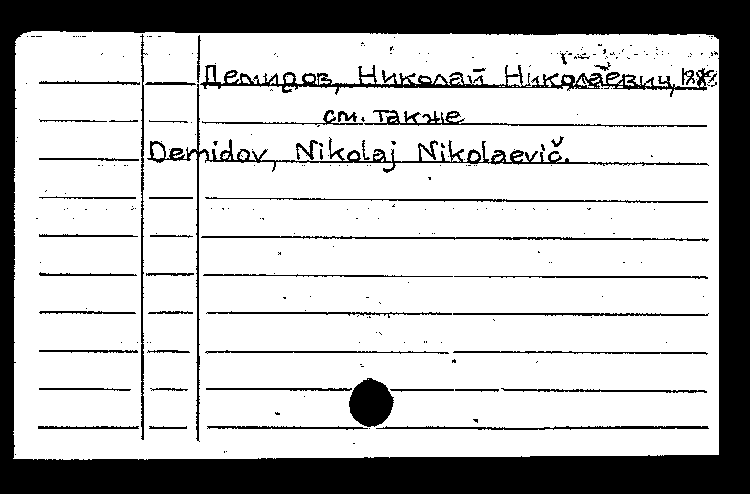 Демидов, Николай Николаевич,
см. также
Demidov, Nikolaj Nikolaevič.